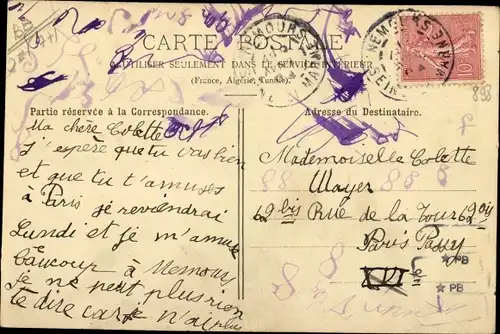 CARTE POSTALE
A UTILISER SEULEMENT DANS LE SERVICE INTÉRIEUR
(France, Algérie, Tunisie).
NEMOURS SEINE
NEMOURS SEINE MARNE
10
Partie réservée à la Correspondance.
Ma chère Colette
J'espère que tu vas bien
et que tu t'amuses
à Paris je reviendrai
Lundi et je m'amuse
beaucoup à Nemours
je ne peut plus rien
te dire car n'ai plus
Adresse du Destinataire.
Mademoiselle Colette
Mayer
62 bis Rue de la Tour 62 bis
Paris Passy
XVI e
★ PB
★ PB